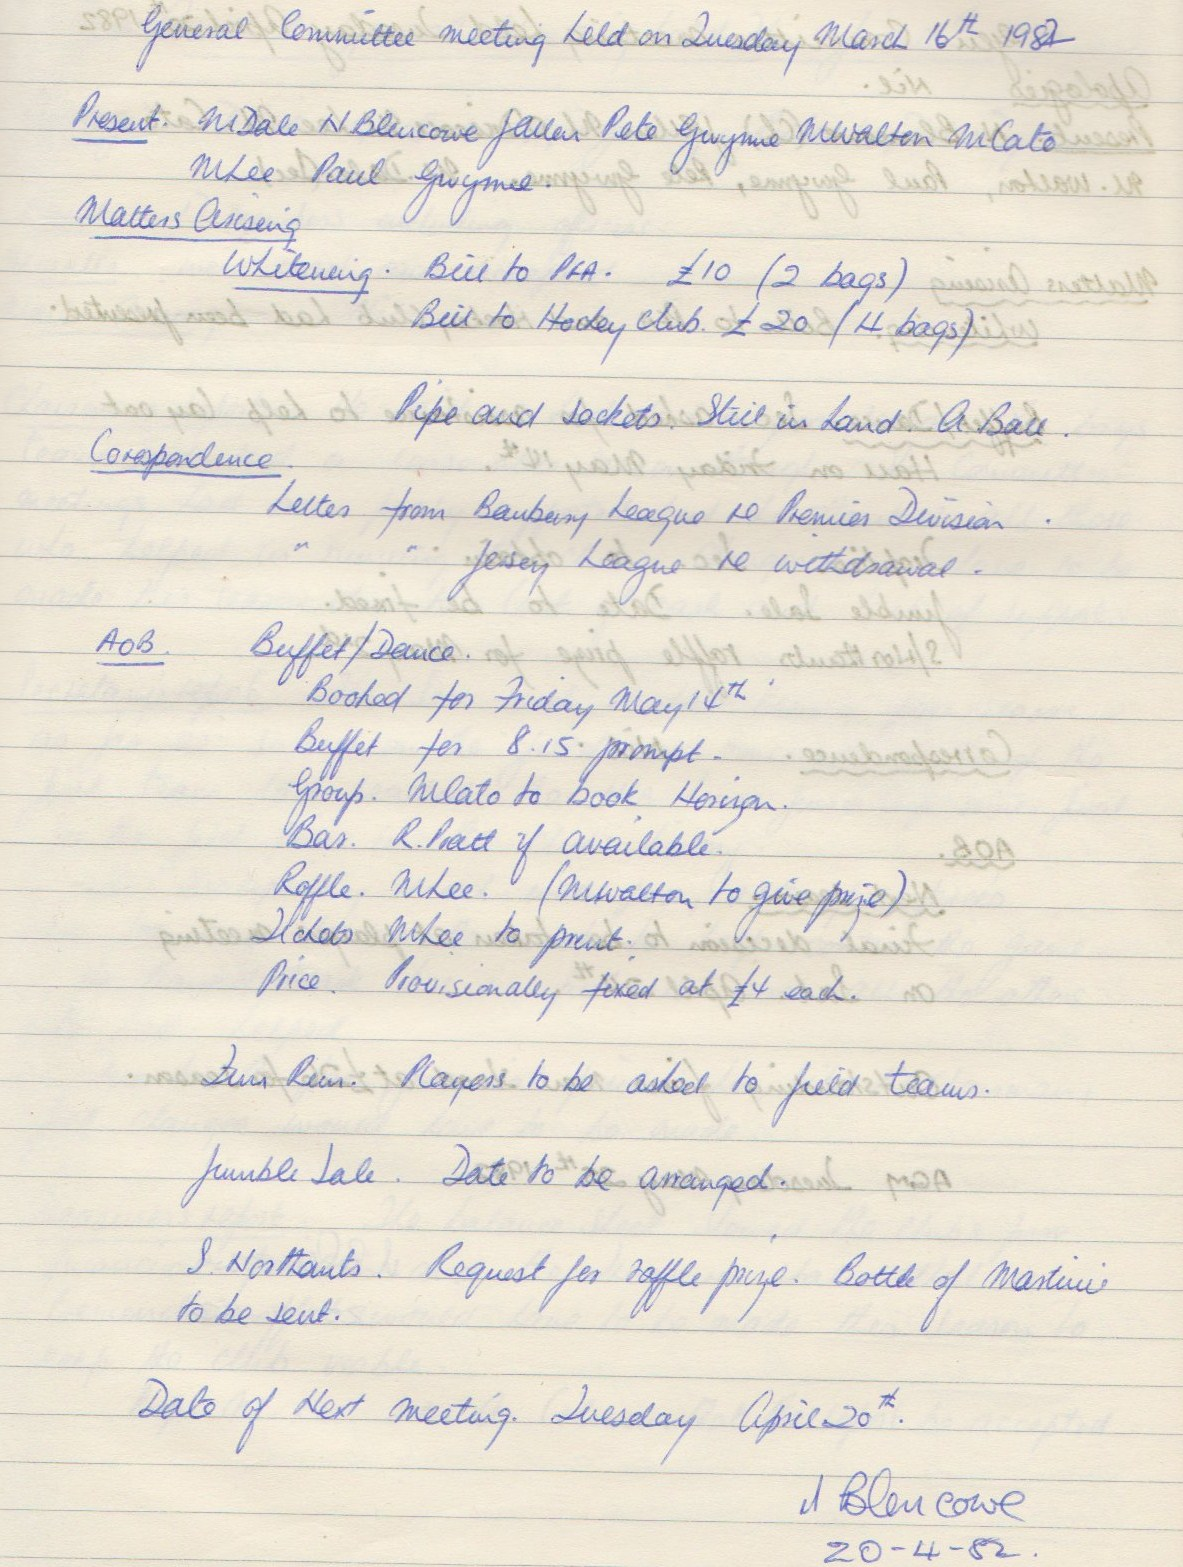 General Committee meeting held on Tuesday March 16th 1982
Present. M Dale N Blencowe J Allen Pete Gwynne M Walton M Cato
M Lee Paul Gwynne.
Matters Arising
Whitening. Bill to PFA. £10 (2 bags)
Bill to Hockey Club. £20 (4 bags)
Pipe and sockets. Still in hand. A Ball.
Corespondence.
Letter from Banbury League re Premier Division.
" " Jersey League re withdrawal.
AOB. Buffet/Dance.
Booked for Friday May 14th
Buffet for 8.15. prompt.
Group. M Cato to book Horizon.
Bar. R. Pratt if available.
Raffle. M Lee. (M Walton to give prize)
Tickets M Lee to print.
Price. Provisionally fixed at £4 each.
Fun Run. Players to be asked to field teams.
Jumble Sale. Date to be arranged.
S. Northants. Request for raffle prize. Bottle of Martini
to be sent.
Date of Next meeting. Tuesday April 20th.
N Blencowe
20-4-82.